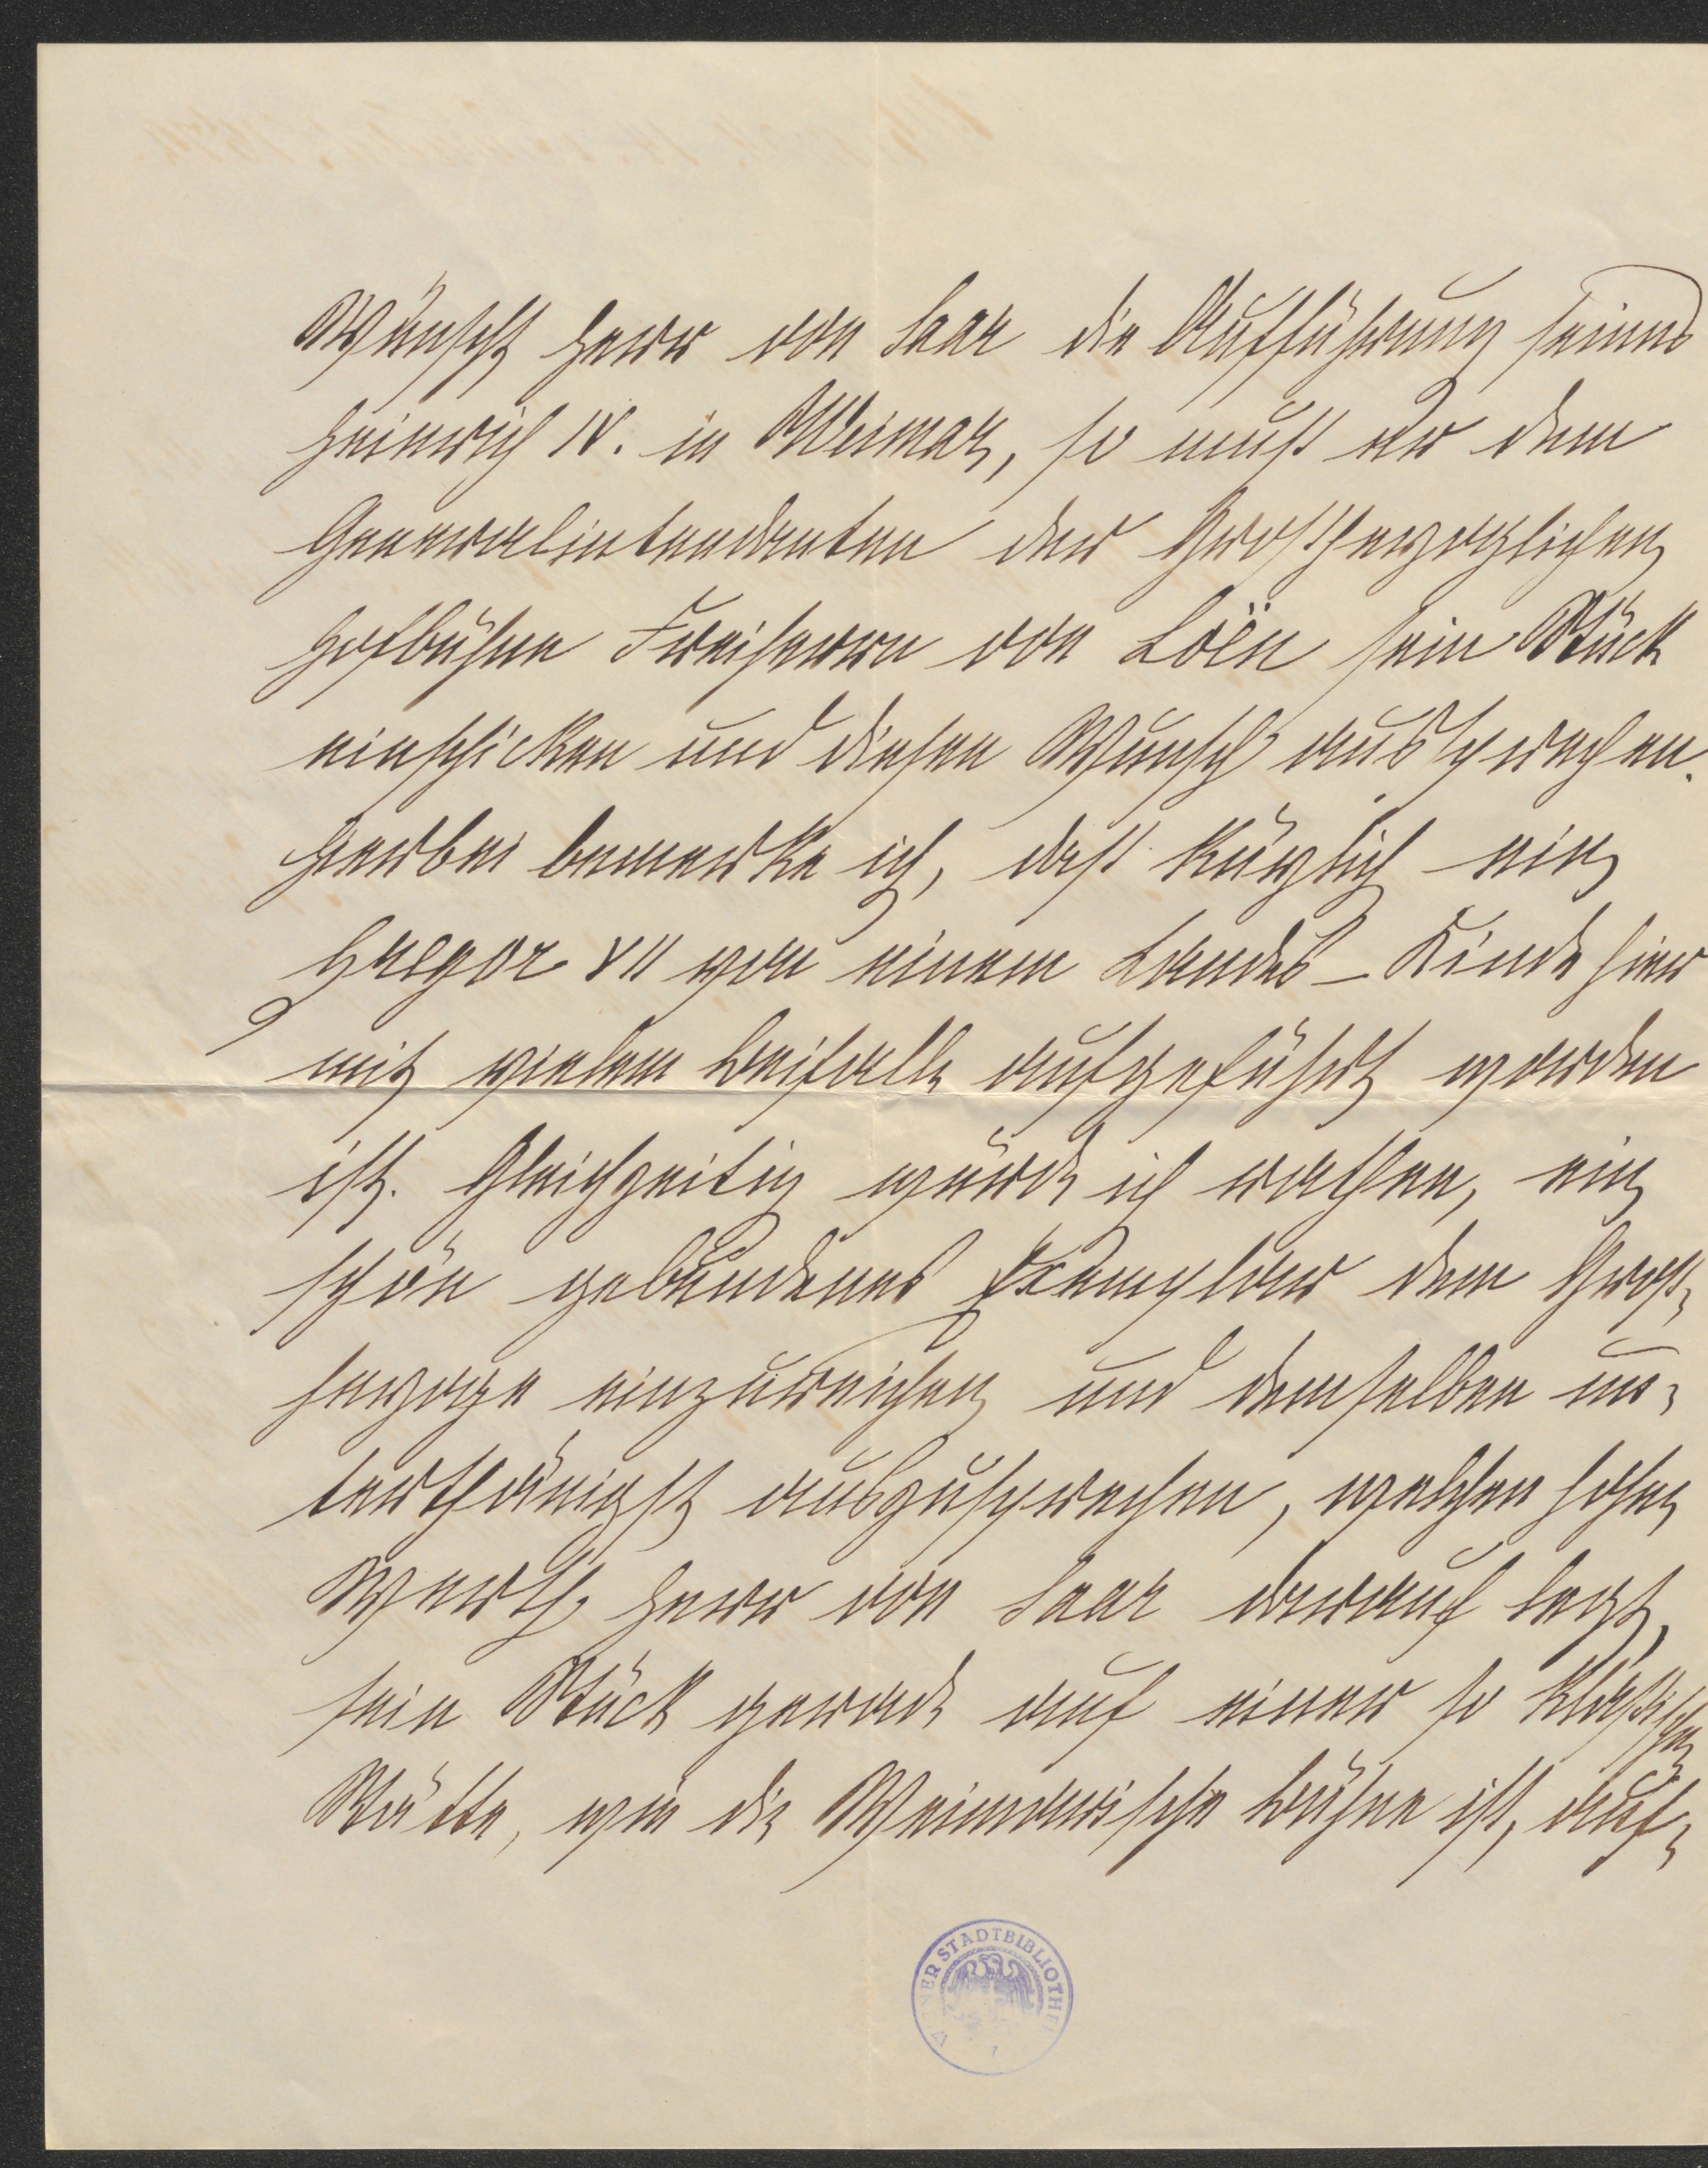 Wünscht Herr von Saar die Aufführung seines
Heinrich IV. in Weimar, so muß er dem
Generalintendanten der Großherzoglichen
Hofbühne Freiherrn von Loën sein Stück
einschicken und diesen Wunsch aussprechen.
Hierbei bemerke ich, daß kürzlich ein
Gregor VII von einem Landes-Kinde hier
mit vielem Beifalle aufgeführt worden
ist. Gleichzeitig würde ich rathen, ein
schön gebundenes Exemplar dem Groß-
herzoge einzureichen und demselben un-
terthänigst auszusprechen, welchen hohen
Werth Herr von Saar darauf legt,
sein Stück gerade auf einer so klaßischen
Stätte, wie die Weimarische Bühne ist, auf-
WIENER STADTBIBLIOTHEK